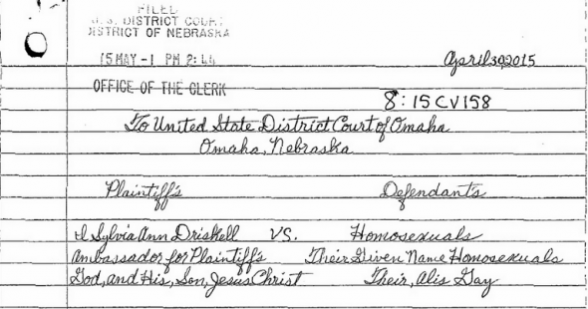 FILED
U.S. DISTRICT COURT
DISTRICT OF NEBRASKA
15 MAY -1 PM 2:44
OFFICE OF THE CLERK
April 30, 2015
8:15CV158
To United State District Court of Omaha
Omaha, Nebraska
Plaintiff's Defendants
I Sylvia Ann Driskell VS. Homosexuals
Ambassador for Plaintiff's Their Given Name Homosexuals
God, and His, Son, Jesus Christ Their, Alis Gay